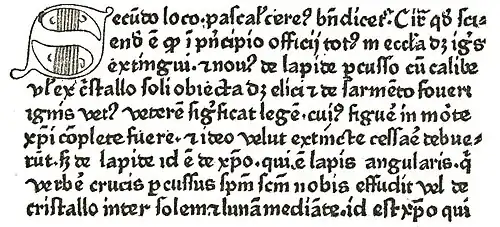 Secũdo loco. pascal' cere⁹ bñdicet᷑. Cir̃ qd̕ sci-
end̕ ē ꝙ ĩ pñcipio officij tot⁹ ĩ eccĩa dꝫ igs̕
extingui. ⁊ nou⁹ de lapide ꝑcusso cũ calibe
ul' ex c̕stallo soli obiecta dꝫ elici ⁊ de sarmẽto foueri
ignis uet⁹ ueterẽ sig̕ficat legẽ. cui⁹ figuẽ in mõte
xp̃i cõplete fuere. ⁊ ideo velut extincte cessãe debue-
rũt. sꝫ de lapide id ẽ de xp̃o. qui. ẽ lapis angularis. q̃
verbẽ crucis ꝑcussus spm̃ scm̃ nobis effudit vel de
cristallo inter solem ⁊ lunã mediãte. id est xp̃o qui